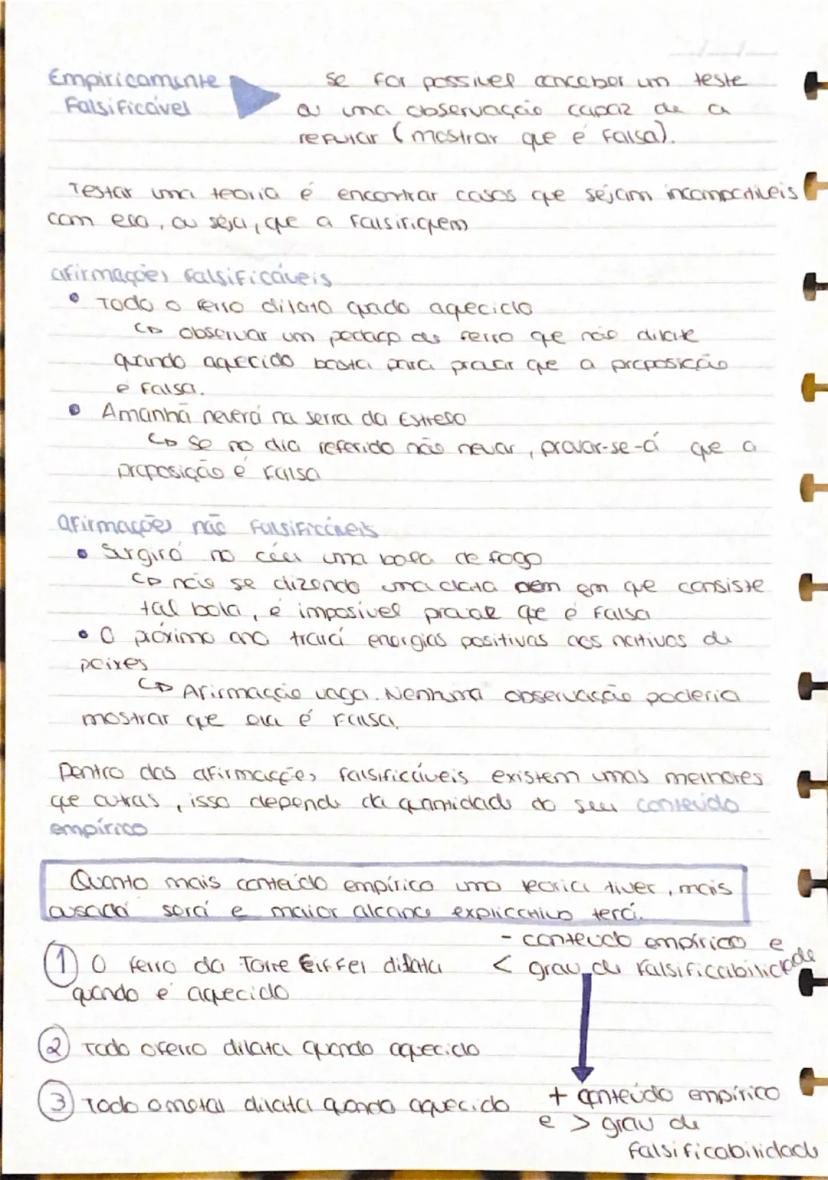 Empiricamente Falsificável
se for possivel conceber um teste
ou uma observação capaz de a
refutar (mostrar que é falsa).
Testar uma teoria é encontrar casos que sejam incompatíveis
com ela, ou seja, que a falsifiquem
afirmações falsificáveis
• Todo o ferro dilata quado aquecido
↳ observar um pedaço de ferro que não dilate
quando aquecido basta para provar que a preposição
é falsa.
• Amanhã neverá na serra da Estrela
↳ se no dia referido não nevar, provar-se-á que a
proposição é falsa
afirmações não falsificáveis
• Surgirá no céu uma bola de fogo
↳ não se dizendo uma data nem em que consiste
tal bola, é imposível provar que é falsa
• O próximo ano trará energias positivas aos nativos de
peixes
↳ Afirmação vaga. Nenhuma observação poderia
mostrar que ela é falsa.
Dentro das afirmações falsificáveis existem umas melhores
que outras, isso depende da quantidade do seu conteúdo
empírico
Quanto mais conteúdo empírico uma teoria tiver, mais
ousada será e maior alcance explicativo terá.
- conteudo empírico e
< grau de falsificabilidade
① O ferro da Torre Eiffel dilata
quando é aquecido
② Todo o ferro dilata quando aquecido
③ Todo o metal dilata quando aquecido
+ conteúdo empírico
e > grau de
falsificabilidade